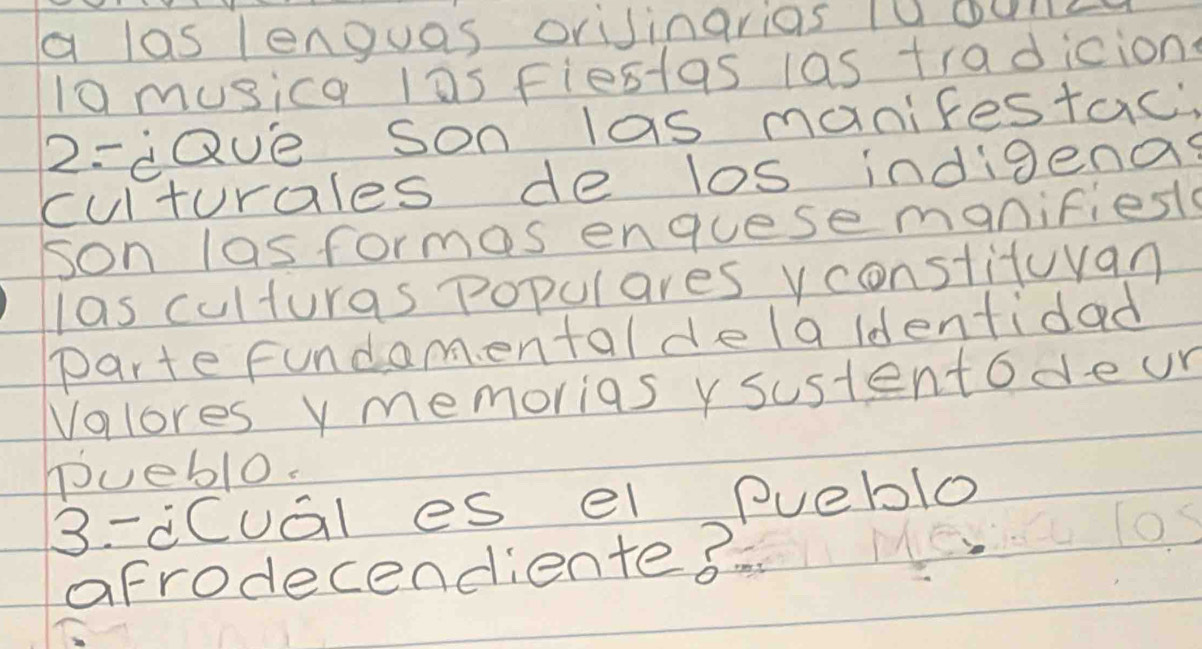 a las lenguas orijinarias la
la musica las fiestas las tradicion
2-¿Qué son las manifestaci
culturales de los indigenas
son las formas en que se manifiest
las culturas Populares y constituyan
parte fundamental de la identidad
Valores y memorias y sustento de un
pueblo.
3.-¿Cuál es el Pueblo
afrodecendiente? los